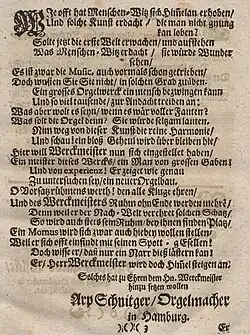 Wie offt hat Menschen-Witz sich Him̃elan erhoben/
Und solche Kunst erdacht/ die man nicht gnung
kan loben?
Solte jetzt die erste Welt erwachen/ und aufstehen
Was Menschen-Witz erdacht/ sie würde Wunder
sehen/
Es ist zwar die Music auch vormals schon getrieben/
Doch wusten Sie Sie nicht/ in solchen Grad zu üben.
Ein grosses Orgelwerck ein mensch bezwingen kann
Und so viel tausende/ zur Andacht treiben an:
Was aber wolt es seyn/ wenn es wär voller Janiter?
Was solt die Orgel denn? Sie würde seltzam lauten.
Nim weg von dieser Kunst die reine Harmonie/
Und schau/ ein bloß Geheul wird über bleiben hie/
Hier will Werckmeister nun sich eingestellet haben/
Ein meister dieses Wercks/ ein Man von grossen Gaben!
Und von experienz! Er zeiget wie genau
Zu untersuchen sey/ ein neuer Orgelbau.
O Vorsap rühmens werth! den alle Kluge ehren/
Und des Werckmeisters Ruhm ohn Ende werden mehrē/
Denn weil er der Nach-Welt verehret solchen Schatz/
So wird auch stets sein Ruhm/ bey ihnen finden Platz/
Ein Momus wird sich zwar auch hiebey wollen stellen/
Weil er sich offt einfindt mit seinen Spott-gesellen!
Doch wisse er/ daß nur ein Narr diß lästern kan!
Er/ Herr Werckmeister wird doch Him̃el steigen an!
Solches hat zu Ehren dem Hn. Werckmeister
hinzu setzen wollen
Arp Schnitger/ Orgelmacher
in Hamburg.
)( )( 3
Er